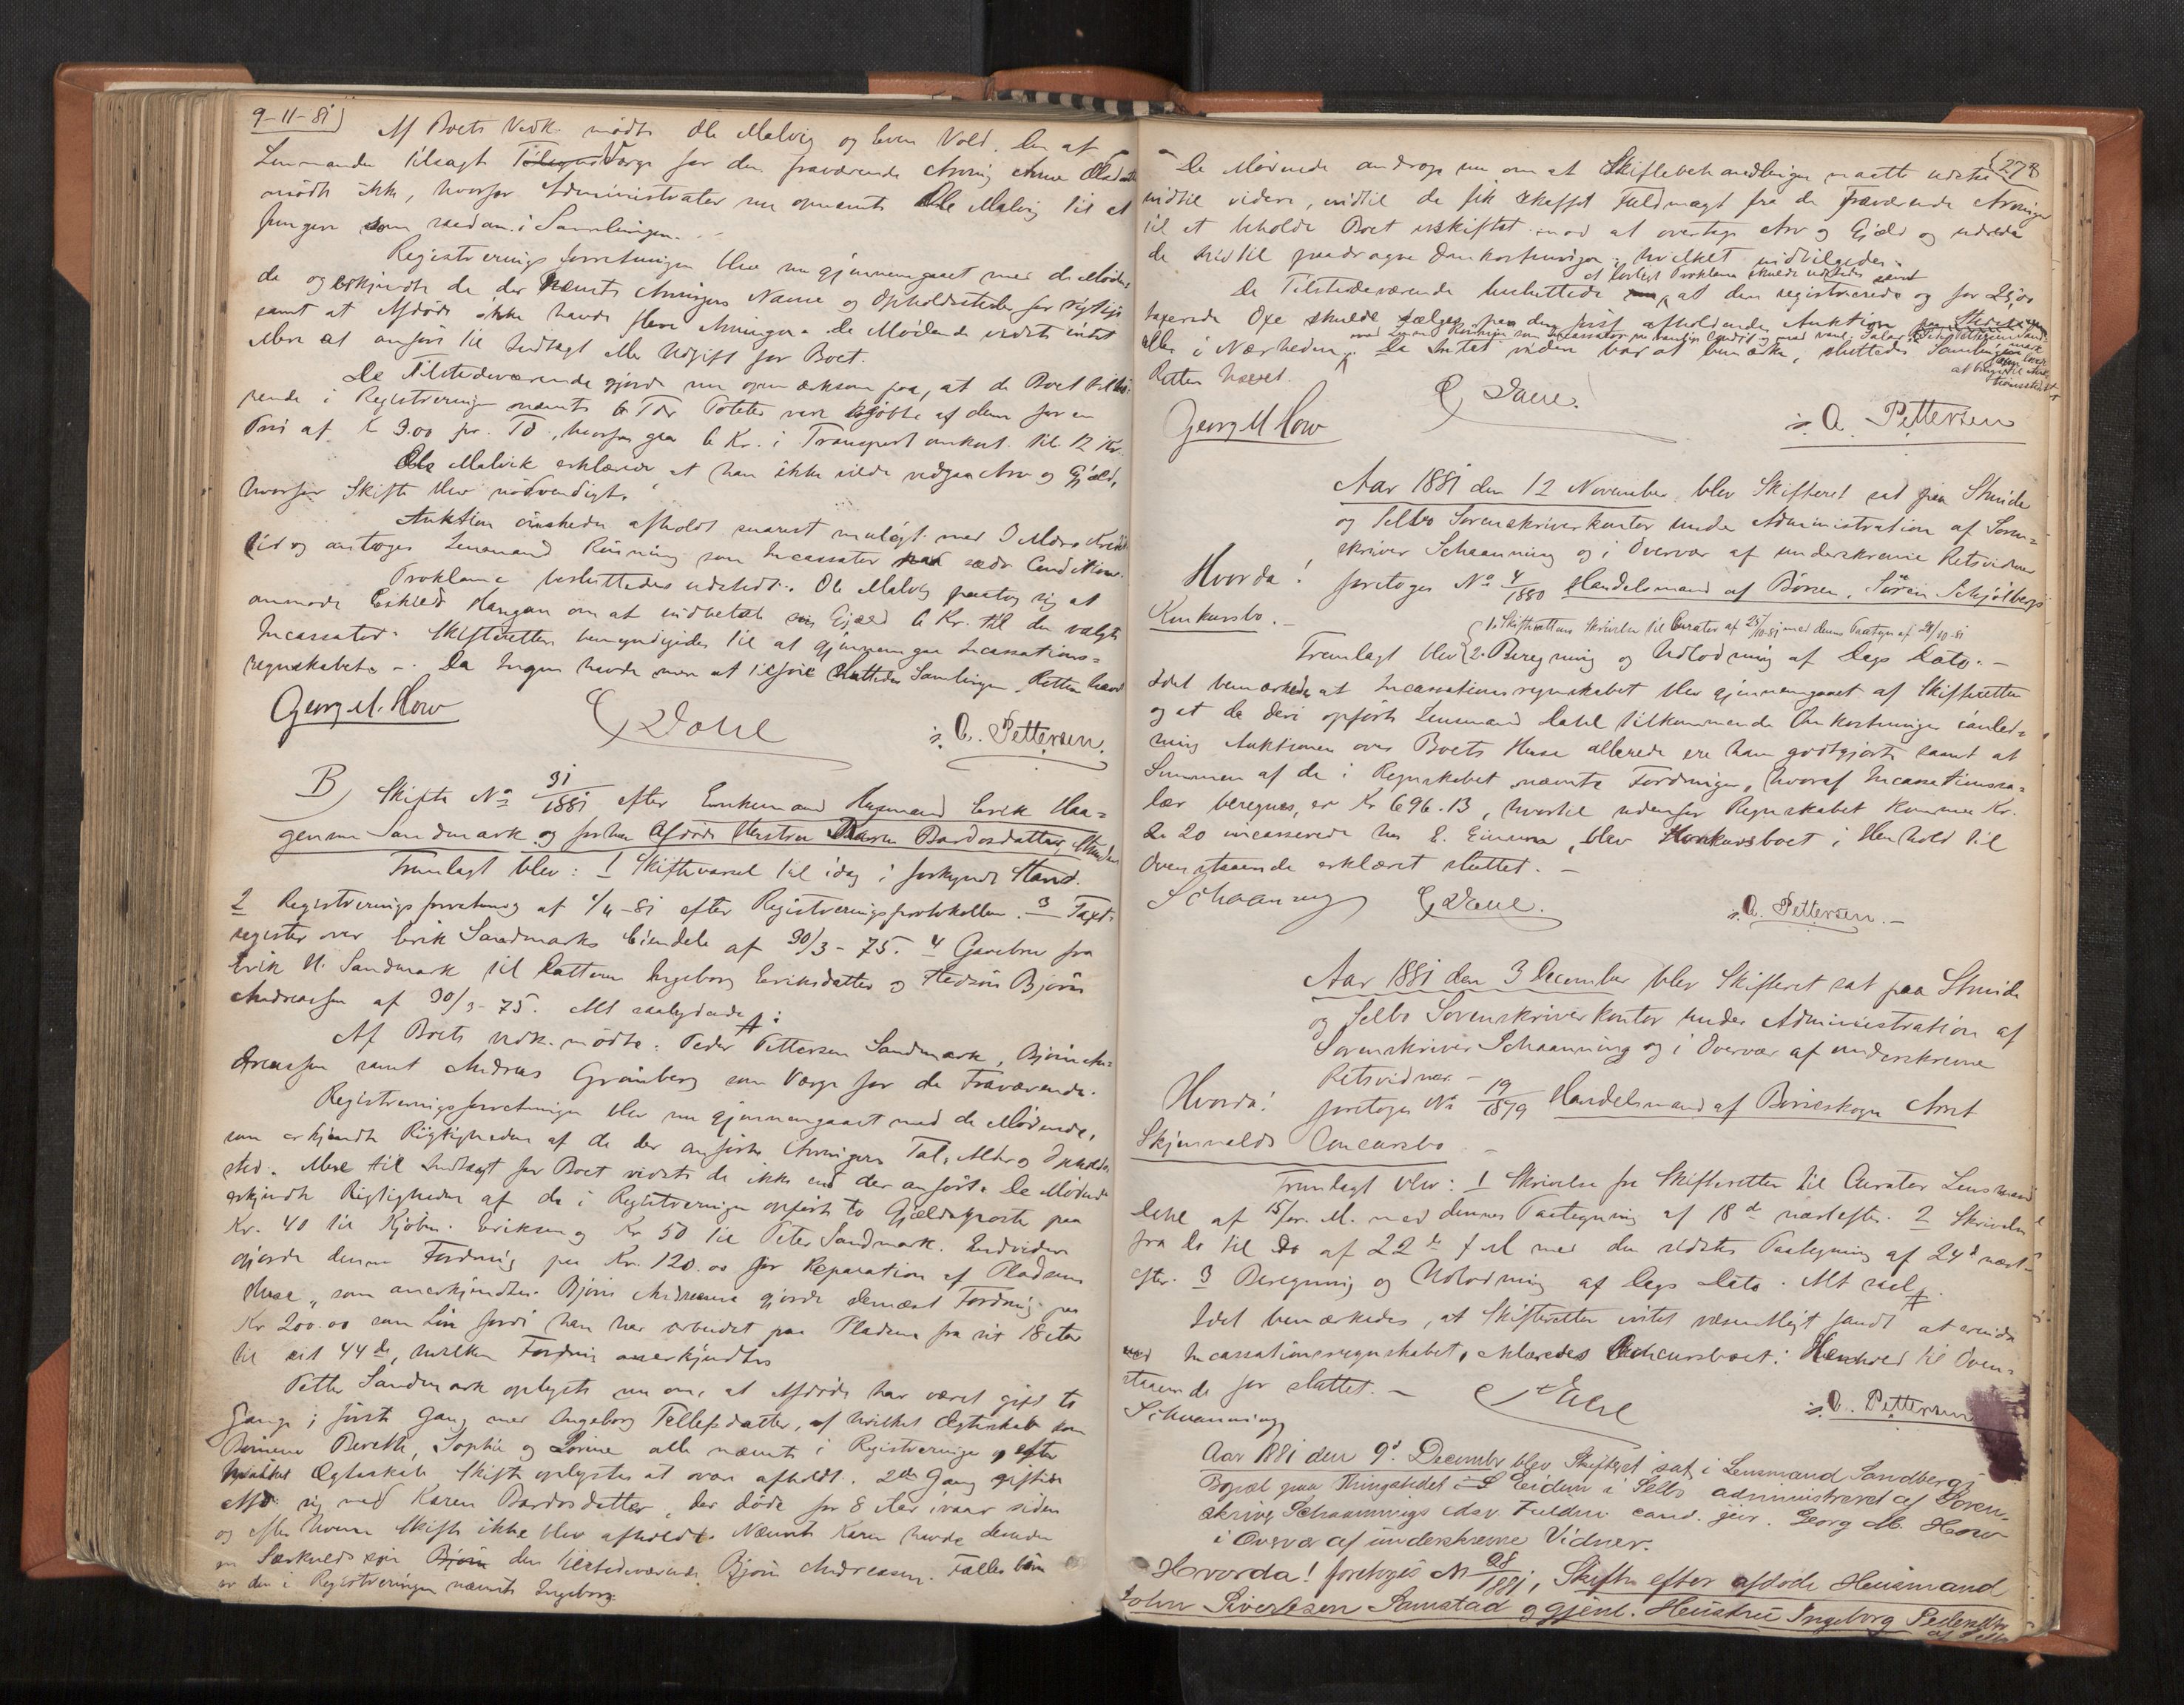 9-11-81)
Af Boets Vedk. mødte Ole Malvig og Even Vold. Den af
Lensmanden tilsagte Værge for den fraværende Arving Anne
mødte ikke, hvorfor Administrator nu opnævnte Ole Malvig til at
fungere som saadan i Samlingen.
Registreringsforretningen blev nu gjennemgaaet med de Møden-
de og erkjendte de der nævnte Arvingers Navne og Opholdssteder for rigtige
samt at Afdøde ikke havde flere Arvinger. De Mødende vidste intet
Mere at anføre til Indtægt eller Udgift for Boet.
De Tilstedeværende gjorde nu opmærksom paa, at de Boet tilhø-
rende i Registreringen nævnte 6 Tdr Poteter vare kjøbte af dem for en
Pris af 3.00 pr. Td, hvorfor gaa 6 Kr. i Transport omkost. til 12 Kr.
Ole Malvik erklærede at han ikke vilde vedgaa Arv og Gjæld,
hvorfor Skifte blev nødvendigt.
Auktion ønskedes afholdt snarest muligt med 3 Mdrs Kredit
tid og antoges Lensmand Rønning som Incassator paa sædv. Conditioner.
Proklama besluttedes udstedt. Ole Malvig paatog sig at
anmode Eskild Haugan om at indbetale sin Gjæld 6 Kr. til den valgte
Incassator. Skifteretten bemyndigedes til at gjennemgaa Incassations-
regnskabet. - Da Ingen havde mere at tilføie sluttedes Samlingen. Retten hævet
Georg M. How
E Dahl
s. A. Pettersen.
B) Skifte No 31/1881 efter Enkemand Husmand Erik Haa-
gensen Sandmark og forhen afdøde Hustru Karen Bardosdatter,
Fremlagt blev: 1 Skiftevarsel til idag i forkyndt Stand.
2 Registreringsforretning af 4/4-81 efter Registreringsprotokollen. 3 Taxt-
register over Erik Sandmarks Eiendele af 30/3-75. 4 Gavebrev fra
Erik H. Sandmark til Datteren Ingeborg Eriksdatter og Stedsøn Bjørn
Andreassen af 30/3-75. Alt saalydende #:
Af Boets vedk. mødte: Peder Pettersen Sandmark, Bjørn An-
dreassen samt Andreas Grønberg som Værge for de Fraværende.
Registreringsforretningen blev nu gjennemgaaet med de Mødende,
som erkjendte Rigtigheden af de der anførte Arvingers Tal, Alder og Opholds
sted. Mere til Indtægt for Boet vidste de ikke end der anført. De Mødende
erkjendte Rigtigheden af de i Registreringen opførte to Gjældsposter paa
Kr. 40 til Kjøbm. Eriksen og Kr 50 til Peter Sandmark. Endvidere
gjorde denne Fordring paa Kr. 120.00 for Reparation af Pladsens
Huse, som anerkjendtes. Bjørn Andreassen gjorde dernæst Fordring paa
Kr 200.00 som Løn fordi han har arbeidet paa Pladsen fra sit 18 Aar
til sit 44de, hvilken Fordring anerkjendtes
Petter Sandmark oplyste nu om, at Afdøde har været gift to
Gange; første Gang med Ingeborg Tellefsdatter, af hvilket Ægteskab som
Børnene Bereth, Sophie og Lorine alle nævnte i Registreringen og efter
hvilket Ægteskab Skifte oplystes at være afholdt. 2den Gang giftede
Afd. sig med Karen Bardosdatter, der døde for 8 Aar ivaar siden
og efter hvem Skifte ikke blev afholdt. Nævnte Karen havde desuden
en Særkuldssøn Bjørn den tilstedeværende Bjørn Andreasen. Fælles barn
er den i Registreringen nævnte Ingeborg.
278
De Mødende androge nu om at Skiftebehandlingen maatte udstaa
indtil videre, indtil de fik skaffet Fuldmagt fra de fraværende Arvinger
til at beholde Boet uskiftet mod at overtage Arv og Gjæld og udrede
de hidtil paadragne Omkostninger, hvilket indvilgedes.
at forlæst Proklama skulde udstedes samt
De Tilstedeværende besluttede at den registrerede og for 25,00
taxerede Oxe skulde sælges paa den først afholdende Auktion
eller i Nærheden. Da Intet videre var at bemærke, sluttedes Samlingen
Retten hævet.
E Dahl.
Georg M How
s. A. Pettersen
Aar 1881 den 12 November blev Skifteret sat paa Strinde
og Selbo Sorenskriverkontor under Administration af Soren-
skriver Schaanning og i Overvær af underskrevne Retsvidner
Hvorda! foretoges No 4/1880 Handelsmand af Børsen, Søren Schjølbergs
Konkursbo.
1. Skifterettens Skrivelse til Curator af 25/10-81 med dennes Paategn af 28/10-81
Fremlagt blev 2. Beregning og Udlodning af Dags Dato. -
Idet bemærkedes at Incassationsregnskabet blev gjennemgaaet af Skifteretten
og at de deri opførte Lensmand Dahl tilkommende Omkostninger i anled-
ning Auktionen over Boets Huse allerede ere ham godtgjorte samt at
Summen af de i Regnskabet nævnte Fordringer, hvoraf Incassationssa-
lær beregnes, er Kr 696.13, hvortil udenfor Regnskabet kommer Kr.
2.20 incasserede hos E. Einum, blev Konkursboet i Henhold til
Ovenstaaende erklæret sluttet. -
Schaanning
E Dahl.
s. A. Pettersen.-
Aar 1881 den 3 December blev Skifteret sat paa Strinde
og Selbo Sorenskriverkontor under Administration af
Sorenskriver Schaanning og i Overvær af underskrevne
Retsvidner. -
Hvorda! foretoges No 19/1879 Handelsmand af Børseskogn Arnt
Skjenvalds Concursbo -
Fremlagt blev: 1 Skrivelse fra Skifteretten til Curator Lensmand
Dahl af 15/ f. M. med dennes Paategning af 18de næstefter. 2 Skrivelse
fra Do til Do af 22de f M med den sidstes Paategning af 24d næst-
efter. 3 Beregning og Udlodning af Dags Dato. Alt saal #.
Idet bemærkedes, at Skifteretten intet væsentligt fandt at erindre
ved Incassationsregnskabet, erklæredes Concursboet i Henhold til Oven-
staaende for sluttet. -
E Dahl
Schaanning
s. A. Pettersen
Aar 1881 den 9d. December blev Skifteret sat i Lensmand Sandbergs
Bopæl paa Thingstedet i Selbo administreret af Soren-
skriver Schaannings edsv. Fuldm. cand. jur. Georg M. How
i Overvær af underskrevne Vidner.
Hvorda! foretoges No 28/1881, Skifte efter afdøde Huusmand
John Sivertsen Samstad og gjenl. Hustru Ingeborg Pedersdtr